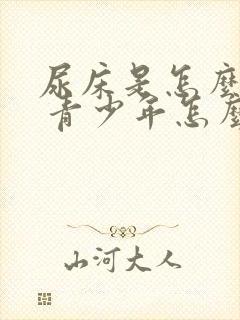 尿床是怎麼
青少年怎麼
山河大人